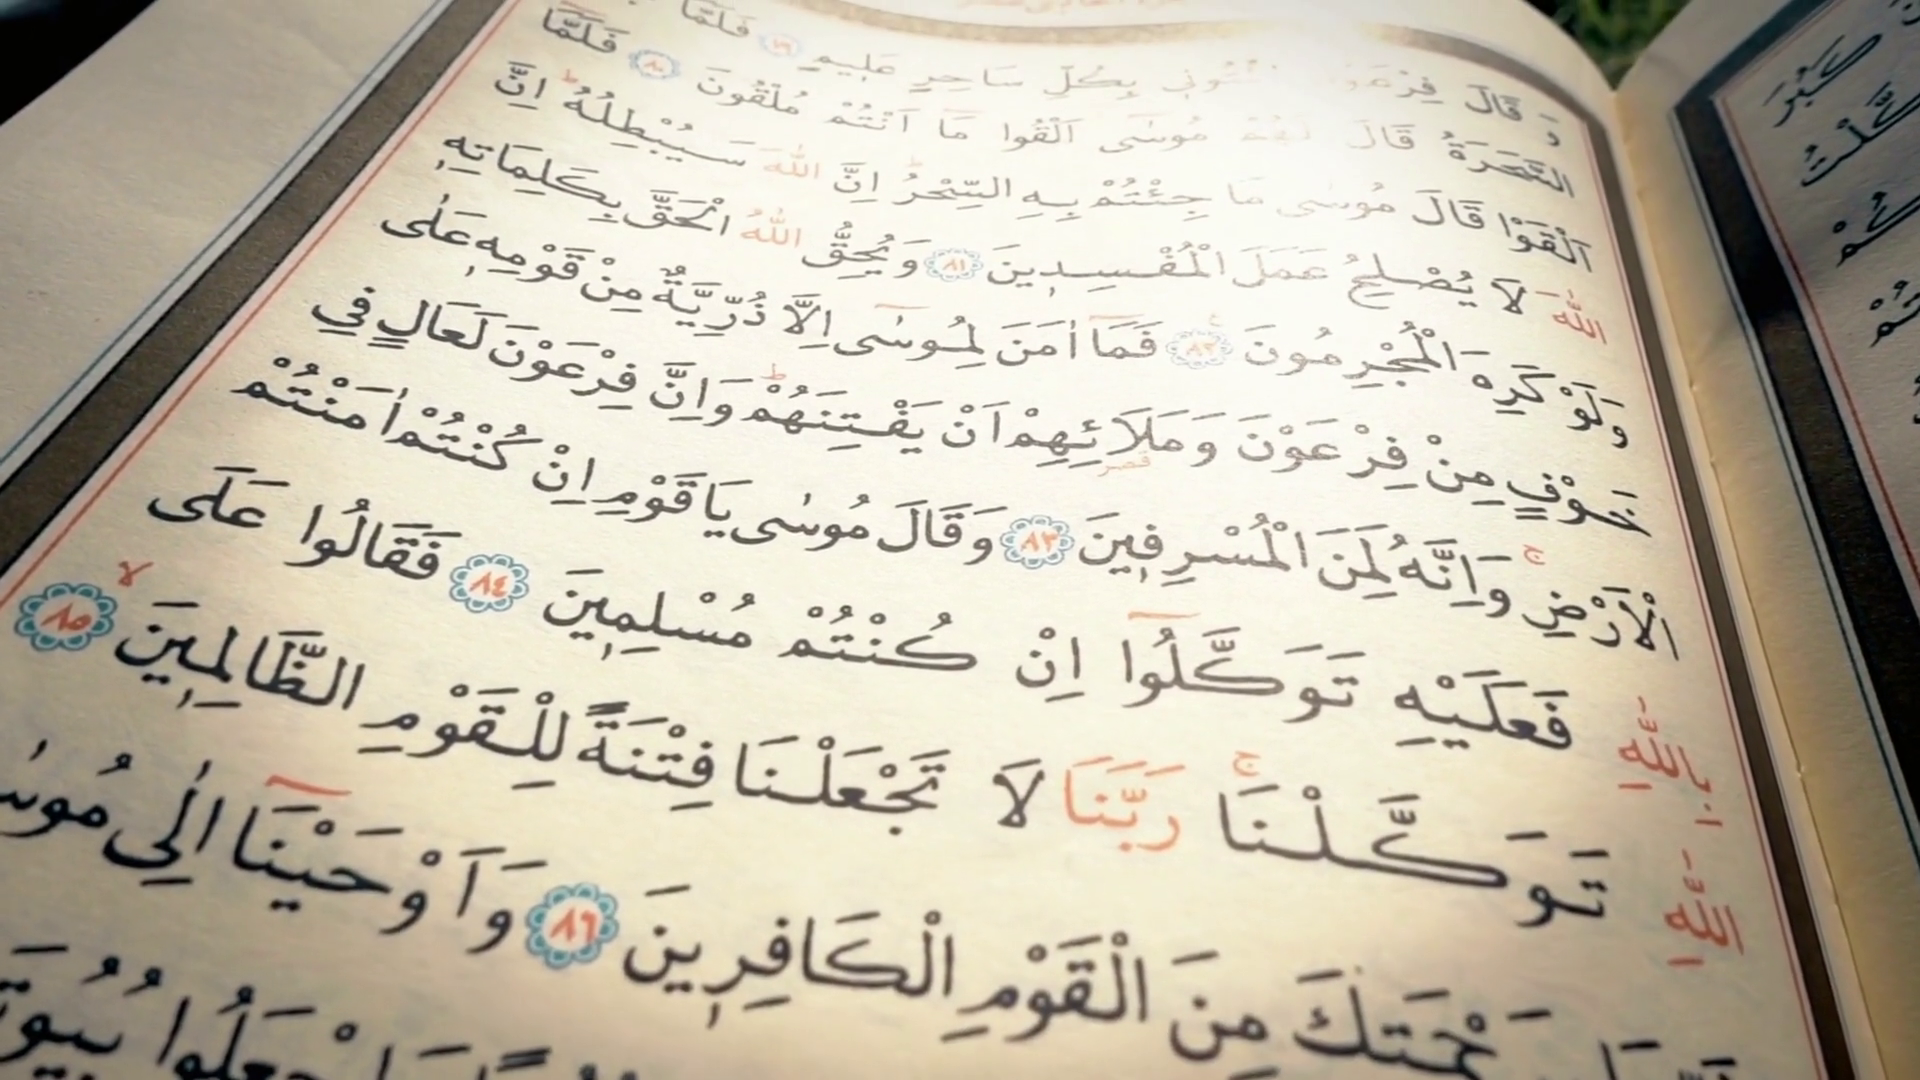 وَقَالَ فِرْعَوْنُ ائْتُونِي بِكُلِّ سَاحِرٍ عَلِيمٍ ٧٩ فَلَمَّا
السَّحَرَةُ قَالَ لَهُمْ مُوسٰى اَلْقُوا مَا اَنْتُمْ مُلْقُونَ ٨٠ فَلَمَّا
اَلْقَوْا قَالَ مُوسٰى مَا جِئْتُمْ بِهِ السِّحْرُ اِنَّ اللّٰهَ سَيُبْطِلُهُ ط اِنَّ
اللّٰهَ لَا يُصْلِحُ عَمَلَ الْمُفْسِدِينَ ٨١ وَيُحِقُّ اللّٰهُ الْحَقَّ بِكَلِمَاتِهِ
وَلَوْ كَرِهَ الْمُجْرِمُونَ ٨٢ فَمَٓا اٰمَنَ لِمُوسٰٓى اِلَّا ذُرِّيَّةٌ مِنْ قَوْمِهِ عَلٰى
خَوْفٍ مِنْ فِرْعَوْنَ وَمَلَائِهِمْ اَنْ يَفْتِنَهُمْ ط وَاِنَّ فِرْعَوْنَ لَعَالٍ فِي
قصر
الْاَرْضِ ج وَاِنَّهُ لَمِنَ الْمُسْرِفِينَ ٨٣ وَقَالَ مُوسٰى يَا قَوْمِ اِنْ كُنْتُمْ اٰمَنْتُمْ
بِاللّٰهِ فَعَلَيْهِ تَوَكَّلُٓوا اِنْ كُنْتُمْ مُسْلِمِينَ ٨٤ فَقَالُوا عَلَى
اللّٰهِ تَوَكَّلْنَا ج رَبَّنَا لَا تَجْعَلْنَا فِتْنَةً لِلْقَوْمِ الظَّالِمِينَ لا ٨٥
بِرَحْمَتِكَ مِنَ الْقَوْمِ الْكَافِرِينَ ٨٦ وَاَوْحَيْنَٓا اِلٰى مُوسٰى
كَبُرَ
تَوَكَّلْتُ